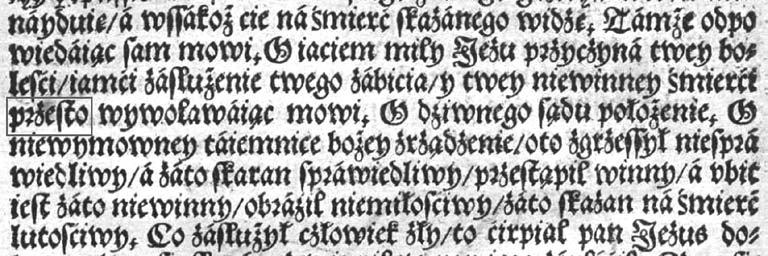 náyduie/á wssákoż cie ná śmierć skażánego widzę. Támże odpo
wiedáiąc sam mowi. O iaciem miły Jezu przyczyná twey bo⸗
leści/iamci záslużenie twego zábicia/y twey niewinney śmierći
przesto wywoławáiąc mowi. O dziwnego sądu położenie. O
niewymowney táiemnice bożey zrządzenie/oto zgrzeszył niesprá
wiedliwy/á záto skaran spráwiedliwy/przestąpił winny/á vbit
iest záto niewinny/obráził niemiłosciwy/záto skazan ná śmierć
lutosciwy. Co zásłużył człowiek zły/to cirpiał pan Jezus do⸗